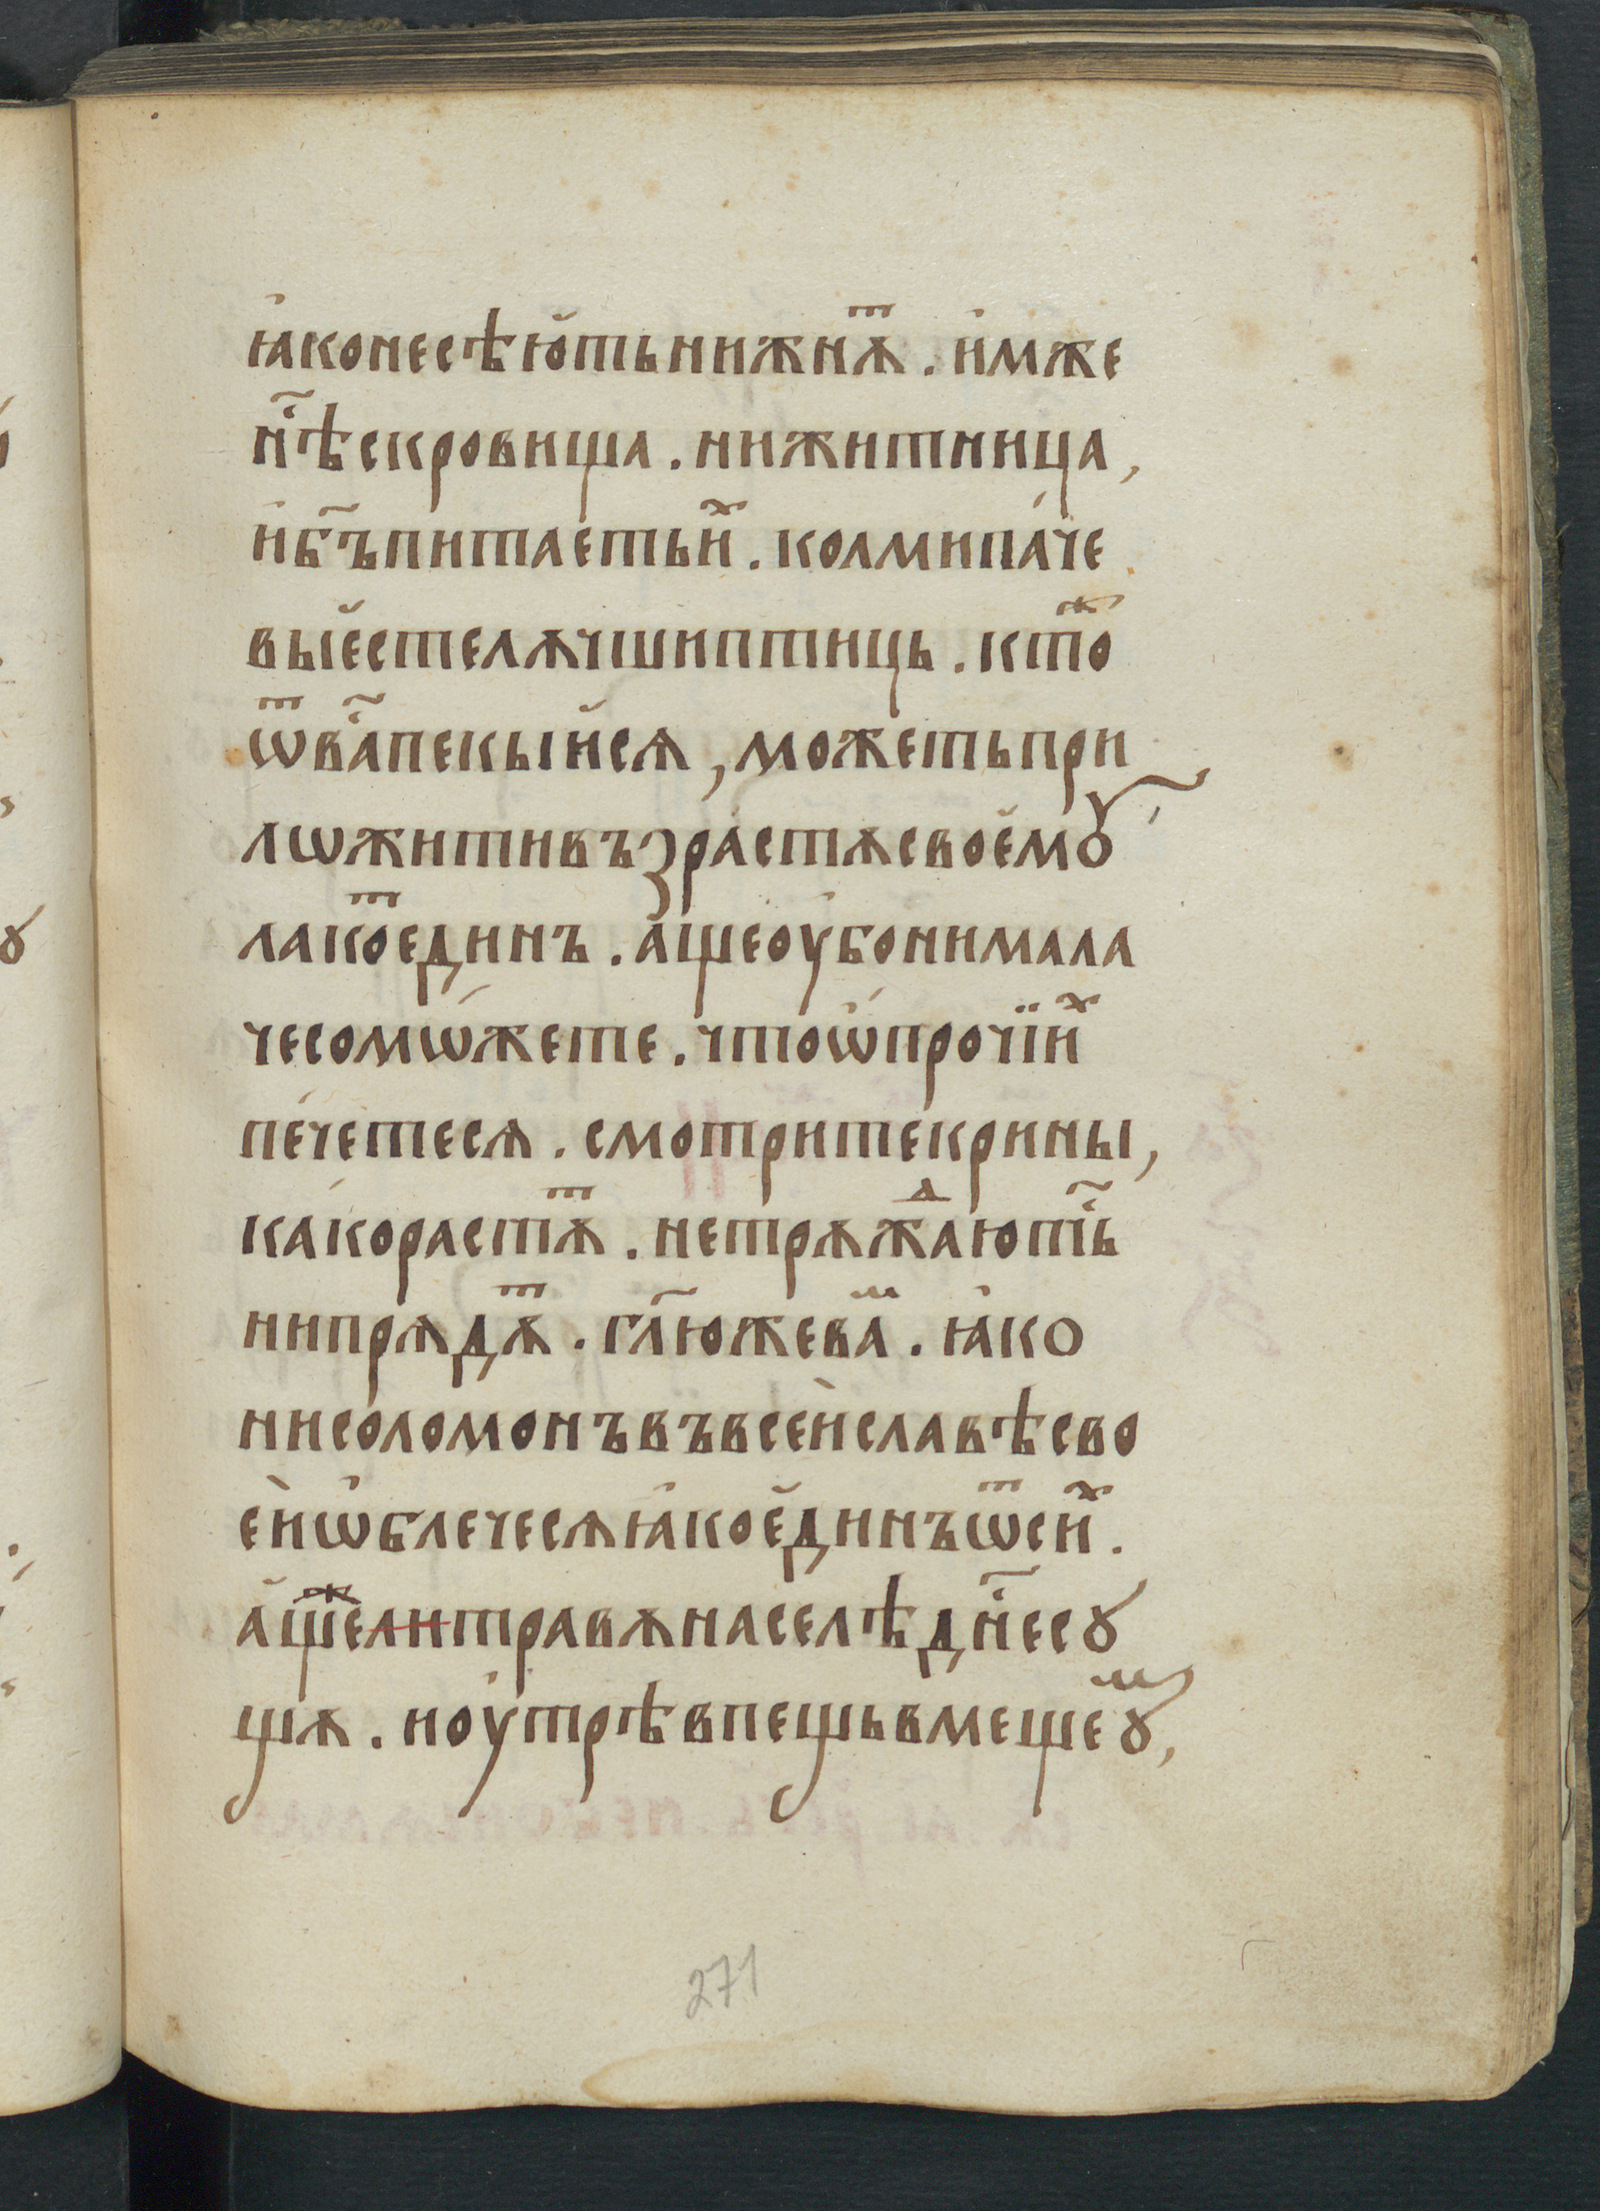 ꙗ҆конесѣю҆тьнижнѧⷮ . и҆мже
нⷭ҇ѣскровища . нижитница ,
и҆бг҃ъпитаетьиⷯ . колмипа́че
выє҆стелѫчшиптиць . ктоⷤ
ѿва҃пекыи҆сѧ , можетьпри
лѡжитивъзрастѫсвоє҆мꙋ̀
лакоⷮединъ . а҆щеоу҆бонимала
чесомѡ́жете . чтоѡ҆прочїиⷯ
пе́четесѧ . смотритекрины ,
ка́корастѫⷮ . нетрѫжⷣаютьⷭ҇
нипрѧдѫⷮ . гл҃южеваⷨ . ꙗ҆ко
нисоломонъвъвсе́йславѣсво
е́йѡ҆блечесѧꙗ҆коє҆динъѿсиⷯ .
а҆щеⷤлитравѫнаселѣдн҃есꙋ
щѫ . ноу҆трѣвпещьвмещеⷨꙋ ,
271